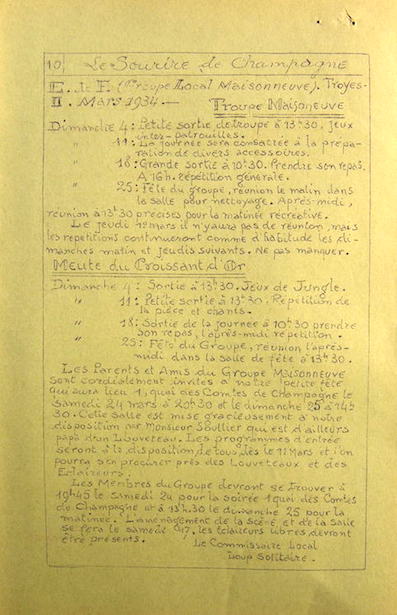 10 Le Sourire de Champagne
E. de F. (Groupe Local Maisonneuve). Troyes-
II. Mars 1934.—
Troupe Maisoneuve
Dimanche 4: Petite sortie de troupe à 13h30. Jeux
inter-patrouilles.
" 11: La journée sera consacrée à la prépa-
ration de divers accessoires.
" 18: Grande sortie à 10h30. Prendre son repas.
A 16h. Répétition générale.
" 25: Fête du groupe, réunion le matin dans
la salle pour nettoyage. Après-midi,
réunion à 13h30 précises pour la matinée récréative.
Le jeudi mars il n'y aura pas de réunion, mais
les répétitions continueront comme d'habitude les di-
manches matin et jeudis suivants. Ne pas manquer.
Meute du Croissant d'Or
Dimanche 4: Sortie à 13h30. Jeux de Jungle.
" 11: Petite sortie à 13h30. Répétition de
la pièce et chants.
" 18: Sortie de la journée à 10h30 prendre
son repas, l'après-midi répétition.
" 25: Fête du Groupe, réunion l'après-
midi dans la salle de fête à 13h30.
Les Parents et Amis du Groupe Maisonneuve
sont cordialement invités à notre petite fête
qui aura lieu 1, quai des Comtes de Champagne le
samedi 24 mars à 20h30 et le dimanche 25 à 14h
30. Cette salle est mise gracieusement à notre
disposition par Monsieur Soullier qui est d'ailleurs
papa d'un Louveteau. Les programmes d'entrée
seront à la disposition de tous dès le 11 Mars et l'on
pourra s'en procurer près des Louveteaux et des
Eclaireurs.
Les Membres du Groupe devront se trouver à
19h45 le samedi 24 pour la soirée 1 quai des Comtes
de Champagne et à 13h30 le dimanche 25 pour la
matinée. L'aménagement de la scène et de la salle
se fera le samedi les éclaireurs libres devront
être présents.
Le Commissaire Local
Loup Solitaire.